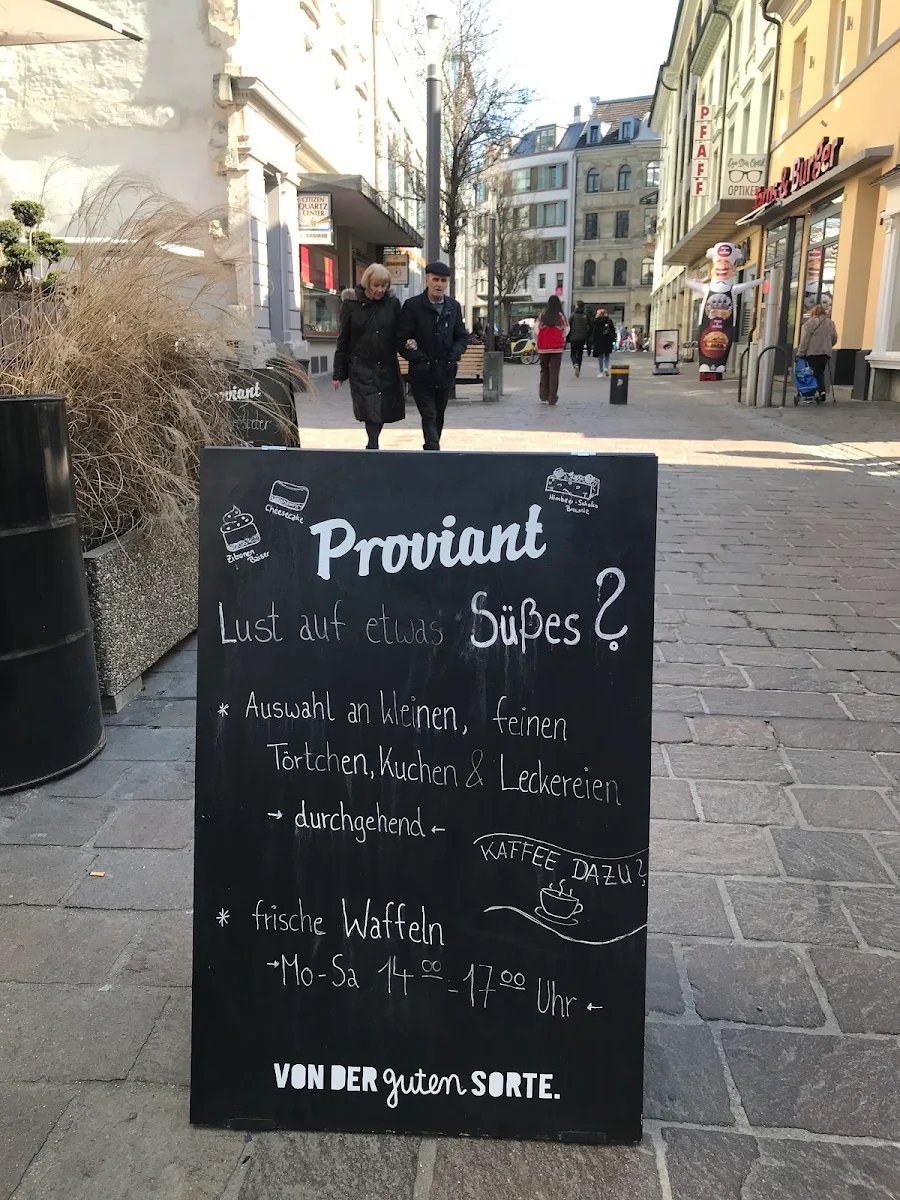 CITIZEN
QUARTZ
CENTER
PFAFF
OPTIKER
& Burger
Cheesecake
Zitronen
Baiser
Himbeer-Schoko
Brownie
Proviant
Lust auf etwas Süßes?
* Auswahl an kleinen, feinen
Törtchen, Kuchen & Leckereien
→ durchgehend ←
KAFFEE DAZU?
* frische Waffeln
→ Mo-Sa 14⁰⁰ - 17⁰⁰ Uhr ←
VON DER guten SORTE.